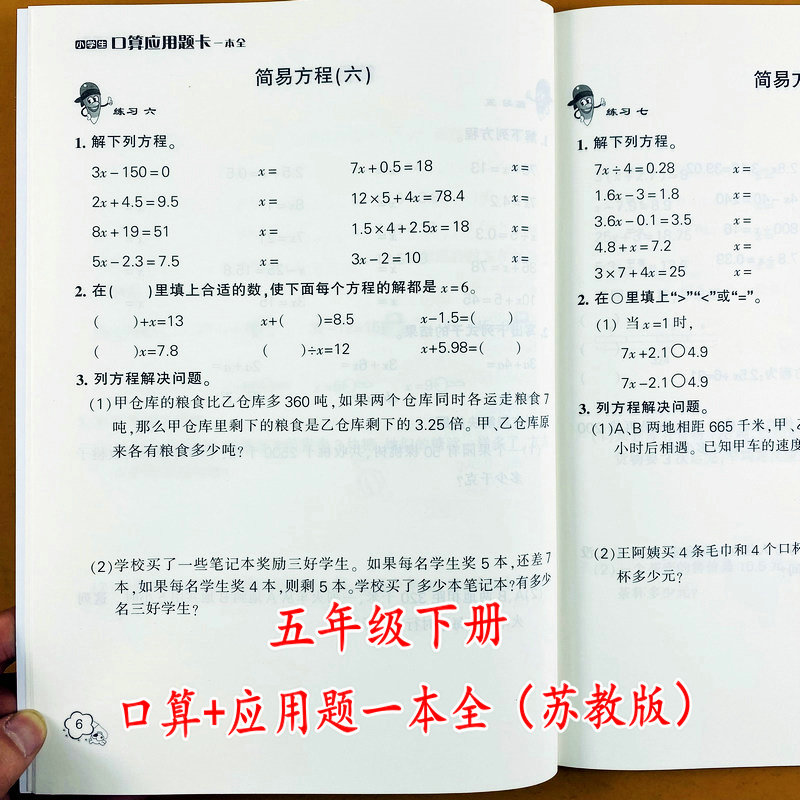 小学生口算应用题卡一本全
简易方程(六)
练习 六
1. 解下列方程。
3x-150=0 x= 7x+0.5=18 x=
2x+4.5=9.5 x= 12×5+4x=78.4 x=
8x+19=51 x= 1.5×4+2.5x=18 x=
5x-2.3=7.5 x= 3x-2=10 x=
2. 在( )里填上合适的数,使下面每个方程的解都是x=6。
( )+x=13 x+( )=8.5 x-1.5=( )
( )x=7.8 ( )÷x=12 x+5.98=( )
3. 列方程解决问题。
(1)甲仓库的粮食比乙仓库多360吨,如果两个仓库同时各运走粮食7
吨,那么甲仓库里剩下的粮食是乙仓库剩下的3.25倍。甲、乙仓库原
来各有粮食多少吨?
(2)学校买了一些笔记本奖励三好学生。如果每名学生奖5本,还差7
本,如果每名学生奖4本,则剩5本。学校买了多少本笔记本?有多少
名三好学生?
6
简易方
练习 七
1. 解下列方程。
7x÷4=0.28 x=
1.6x-3=1.8 x=
3.6x-0.1=3.5 x=
4.8+x=7.2 x=
3×7+4x=25 x=
2. 在○里填上“>”“<”或“=”。
(1) 当x=1时,
7x+2.1○4.9
7x-2.1○4.9
3. 列方程解决问题。
(1)A、B两地相距665千米,甲、乙
小时后相遇。已知甲车的速度
(2)王阿姨买4条毛巾和4个口杯
杯多少元?
五年级下册
口算+应用题一本全（苏教版）